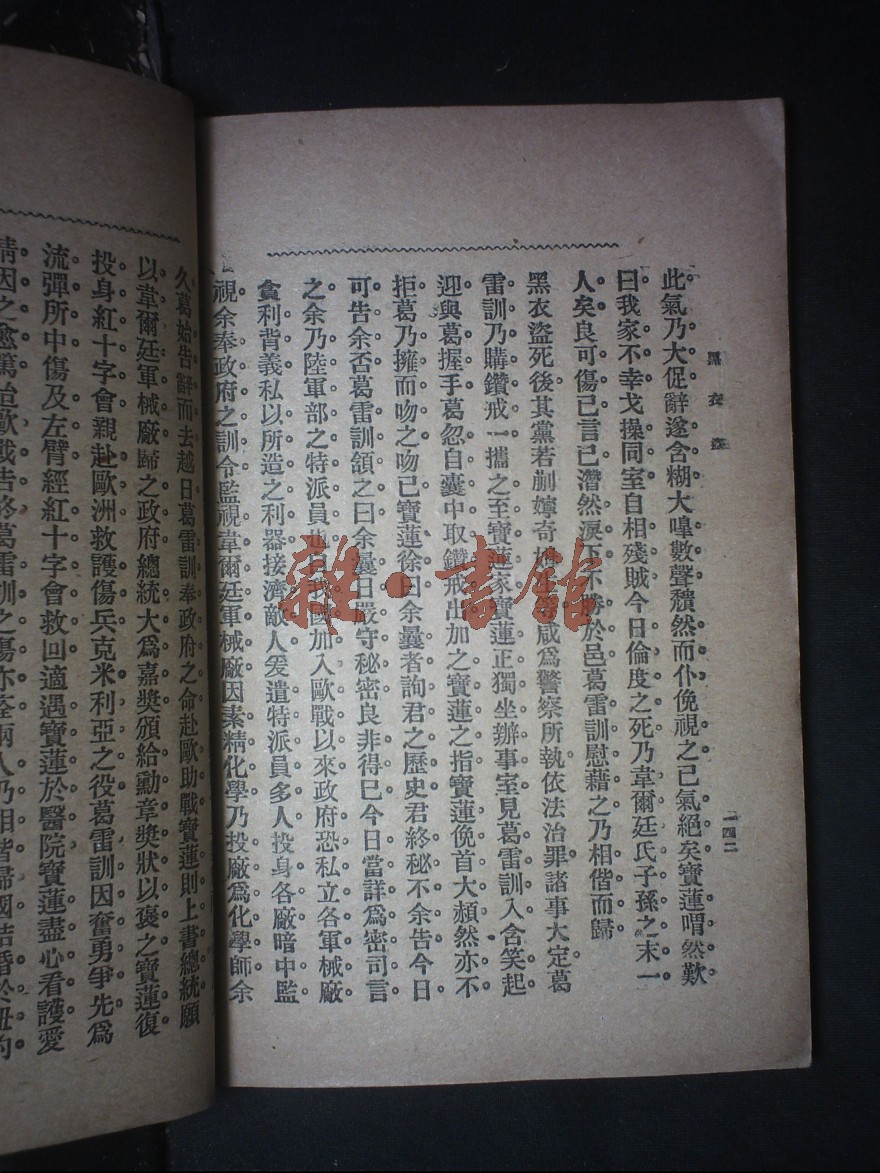 黑衣盜
一四二
此氣乃大促辭遂含糊大嘷數聲。穨然而仆。俛視之已氣絕矣。寶蓮喟然歎
曰。我家不幸。戈操同室。自相殘賊。今日倫度之死。乃韋爾廷氏子孫之末一
人矣。良可傷已。言已潸然淚下。不勝於邑。葛雷訓慰藉之。乃相偕而歸
黑衣盜死後。其黨若蒯嬣奇咸爲警察所執。依法治罪。諸事大定。葛
雷訓乃購鑽戒一。攜之至寶蓮家。寶蓮正獨坐辦事室。見葛雷訓入。含笑起
迎。與葛握手。葛忽自囊中取鑽戒出。加之寶蓮之指。寶蓮俛首大頳。然亦不
拒。葛乃擁而吻之。吻已。寶蓮徐曰。余曩者詢君之歷史。君終秘不余告。今日
可告余否。葛雷訓頷之曰。余曩日嚴守秘密。良非得已。今日當詳爲密司言
之。余乃陸軍部之特派員也。自我國加入歐戰以來。政府恐私立各軍械廠
貪利背義。私以所造之利器接濟敵人。爰遣特派員多人。投身各廠。暗中監
視。余奉政府之訓令。監視韋爾廷軍械廠。因素精化學。乃投廠爲化學師。余
久葛始告辭而去。越日葛雷訓奉政府之命。赴歐助戰。寶蓮則上書總統。願
以韋爾廷軍械廠歸之政府。總統大爲嘉獎。頒給勳章獎狀以褒之。寶蓮復
投身紅十字會。親赴歐洲救護傷兵。克米利亞之役。葛雷訓因奮勇爭先。爲
流彈所中。傷及左臂。經紅十字會救回。適遇寶蓮於醫院。寶蓮盡心看護。愛
情因之愈篤。迨歐戰告終。葛雷訓之傷亦痊。兩人乃相偕歸國。結婚於紐約
雜·書館